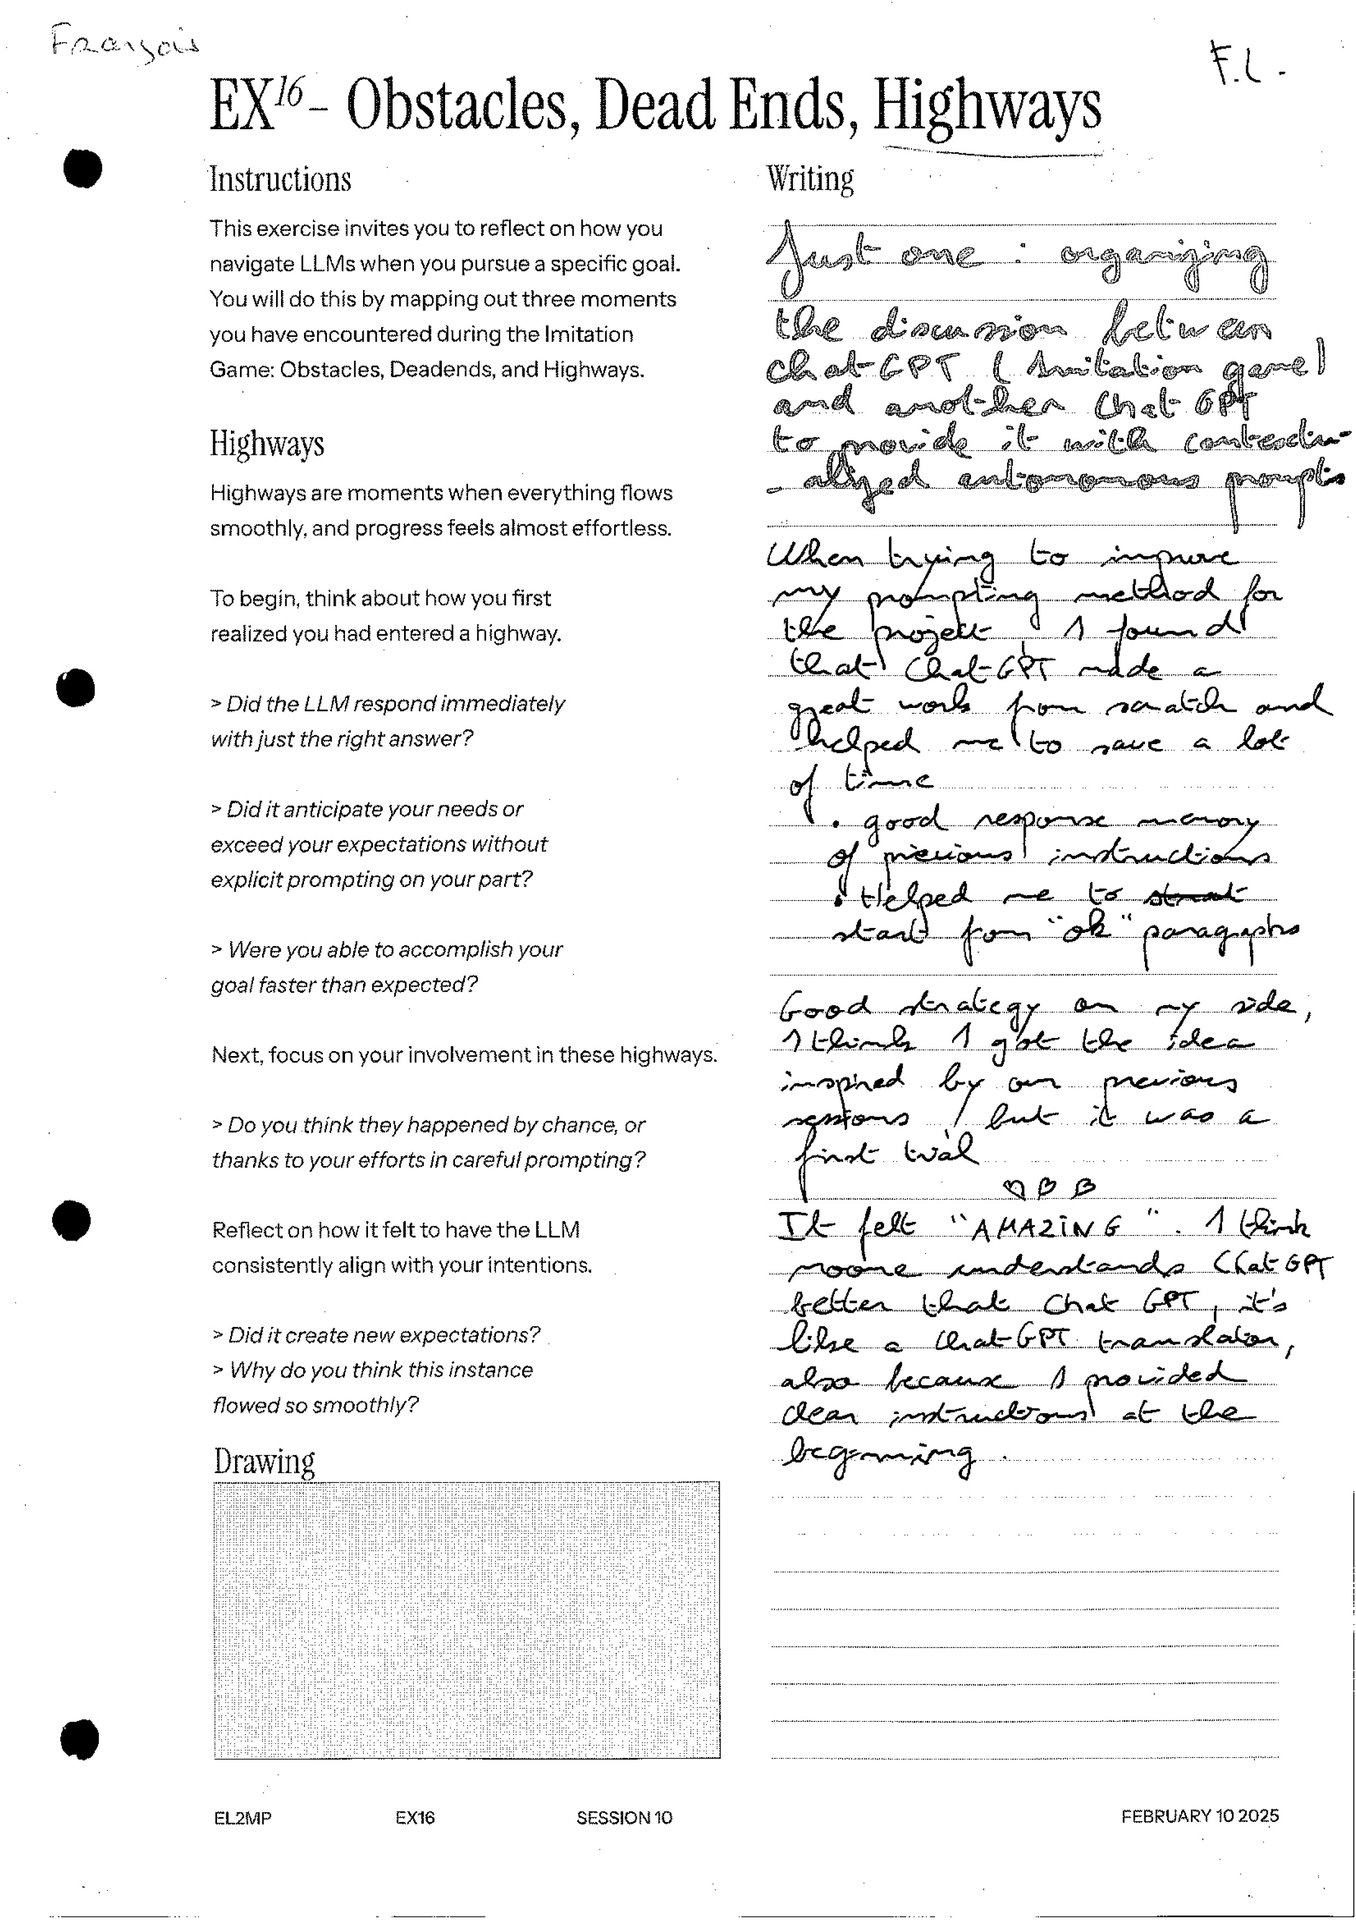 François
F.L.
EX16 – Obstacles, Dead Ends, Highways
Instructions
This exercise invites you to reflect on how you
navigate LLMs when you pursue a specific goal.
You will do this by mapping out three moments
you have encountered during the Imitation
Game: Obstacles, Deadends, and Highways.
Highways
Highways are moments when everything flows
smoothly, and progress feels almost effortless.
To begin, think about how you first
realized you had entered a highway.
> Did the LLM respond immediately
with just the right answer?
> Did it anticipate your needs or
exceed your expectations without
explicit prompting on your part?
> Were you able to accomplish your
goal faster than expected?
Next, focus on your involvement in these highways.
> Do you think they happened by chance, or
thanks to your efforts in careful prompting?
Reflect on how it felt to have the LLM
consistently align with your intentions.
> Did it create new expectations?
> Why do you think this instance
flowed so smoothly?
Drawing
Writing
Just one : organizing
the discussion between
chatGPT (Imitation game)
and another ChatGPT
to provide it with contextu-
-alized autonomous prompts
When trying to improve
my prompting method for
the project, I found
that ChatGPT made a
great work from scratch and
helped me to save a lot
of time
• good response memory
of previous instructions
• Helped me to
start from "ok" paragraphs
Good strategy on my side,
I think I got the idea
inspired by our previous
sessions, but it was a
first trial
It felt "AMAZING". I think
noone understands ChatGPT
better that Chat GPT, it's
like a ChatGPT translator,
also because I provided
clear instructions at the
beginning.
EL2MP EX16 SESSION 10 FEBRUARY 10 2025